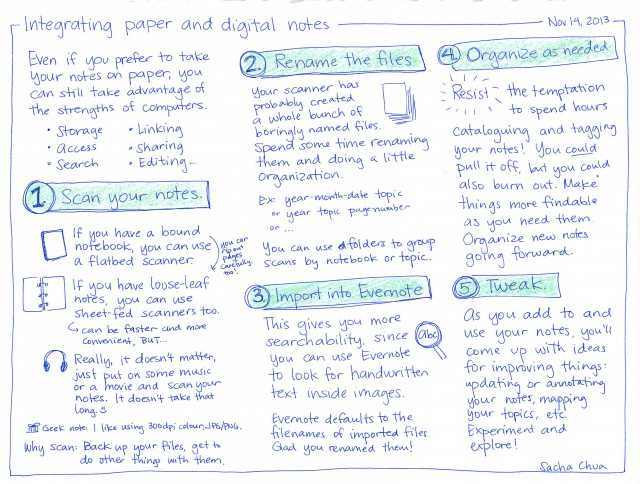 Integrating paper and digital notes
Nov 14, 2013
Even if you prefer to take
your notes on paper, you
can still take advantage of
the strengths of computers.
• Storage • Linking
• Access • Sharing
• Search • Editing...
1. Scan your notes.
If you have a bound
notebook, you can use
a flatbed scanner.
you can
rip out
pages
carefully,
too!
If you have loose-leaf
notes, you can use
sheet-fed scanners too.
can be faster and more
convenient, BUT...
Really, it doesn't matter,
just put on some music
or a movie and scan your
notes. It doesn't take that
long.
Geek note: I like using 300dpi colour JPG/PNG.
Why scan: Back up your files, get to
do other things with them.
2. Rename the files.
Your scanner has
probably created
a whole bunch of
boringly named files.
Spend some time renaming
them and doing a little
organization.
Ex: year-month-date topic
or year topic page-number
or ...
You can use folders to group
scans by notebook or topic.
3. Import into Evernote
This gives you more
searchability, since
you can use Evernote
to look for handwritten
text inside images.
abc
Evernote defaults to the
filenames of imported files.
Glad you renamed them!
4. Organize as needed
Resist the temptation
to spend hours
cataloguing and tagging
your notes! You could
pull it off, but you could
also burn out. Make
things more findable
as you need them.
Organize new notes
going forward.
5. Tweak.
As you add to and
use your notes, you'll
come up with ideas
for improving things:
updating or annotating
your notes, mapping
your topics, etc.
Experiment and
explore!
Sacha Chua